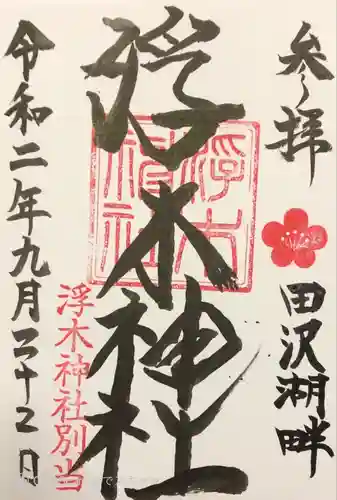 参拝
田沢湖畔
浮木神社
浮木神社
浮木神社別当
令和二年九月二十二日